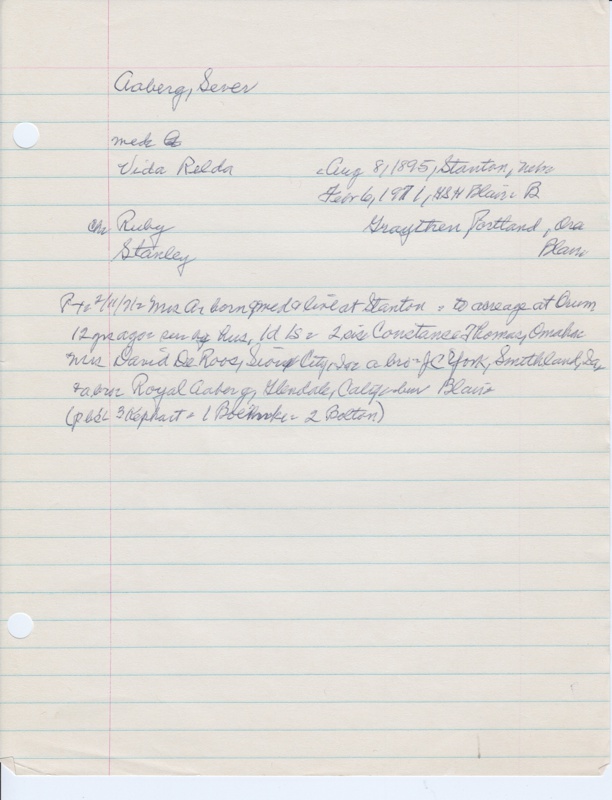 Aaberg, Sever
med
Vida Relda Aug 8, 1895, Stanton, Nebr
Feb 6, 1971, HSH Blair B
ch Ruby Graythen Portland, Ore
Stanley Blair
P T 2/11/71 Mrs A born med & live at Stanton to acreage at Orum
12 yrs ago sur by hus, 1d 1s 2 sis Constance Thomas, Omaha
Mrs David De Roos, Sioux City, Ia a bro J C York, Smithland, Ia,
Royal Aaberg, Glendale, California Blair
(pbb 3 Kephart 1 Boehnke 2 Bolton)